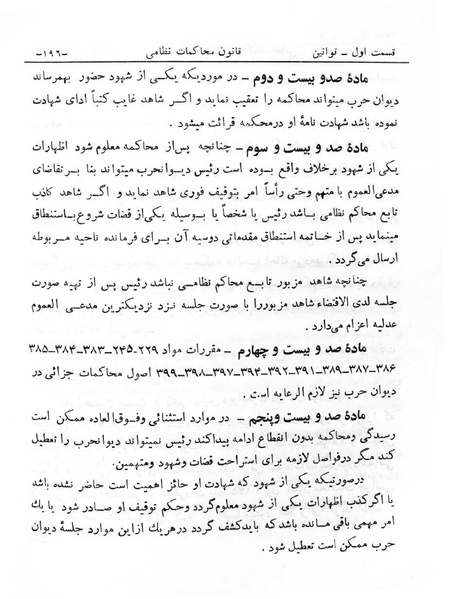 قسمت اول ـ قوانین قانون محاکمات نظامی ـ۱۹٦ـ
مادهٔ صدو بیست و دوم ـ در موردیکه یکی از شهود حضور بهمرساند
دیوان حرب میتواند محاکمه را تعقیب نماید و اگر شاهد غایب کتباً ادای شهادت
نموده باشد شهادت نامهٔ او درمحکمه قرائت میشود .
مادهٔ صدو بیست و سوم ـ چنانچه پس‌از محاکمه معلوم شود اظهارات
یکی از شهود برخلاف واقع بوده است رئیس دیوانحرب میتواند بنا بر تقاضای
مدعی‌العموم یا متهم وحتی رأساً امر بتوقیف فوری شاهد نماید و اگر شاهد کاذب
تابع محاکم نظامی باشد رئیس یا شخصاً یا بوسیله یکی‌از قضات شروع باستنطاق
مینماید پس از خاتمه استنطاق مقدماتی دوسیه آن برای فرمانده ناحیه مربوطه
ارسال می‌گردد .
چنانچه شاهد مزبور تابع محاکم نظامی نباشد رئیس پس از تهیه صورت
جلسه لدی الاقتضاء شاهد مزبوررا با صورت جلسه نزد نزدیکترین مدعی العموم
عدلیه اعزام می‌دارد .
مادهٔ صدو بیست و چهارم ـ مقررات مواد ۲۲۹ـ۲٤۵ـ۳۸۳ـ۳۸٤ـ۳۸۵
۳۸٦ـ۳۸۷ـ۳۸۹ـ۳۹۱ـ۳۹۲ـ۳۹٤ـ۳۹۷ـ۳۹۸ـ۳۹۹ اصول محاکمات جزائی در
دیوان حرب نیز لازم الرعایه است .
مادهٔ صدو بیست وپنجم ـ در موارد استثنائی وفوق‌العاده ممکن است
رسیدگی ومحاکمه بدون انقطاع ادامه پیداکند رئیس نمیتواند دیوانحرب را تعطیل
کند مگر درفواصل لازمه برای استراحت قضات وشهود ومتهمین.
درصورتیکه یکی از شهود که شهادت او حائز اهمیت است حاضر نشده باشد
یا اگرکذب اظهارات یکی از شهود معلوم‌گردد وحکم توقیف او صادر شود یا یك
امر مهمی باقی مانده باشد که بایدکشف گردد درهریك ازاین موارد جلسهٔ دیوان
حرب ممکن است تعطیل شود .